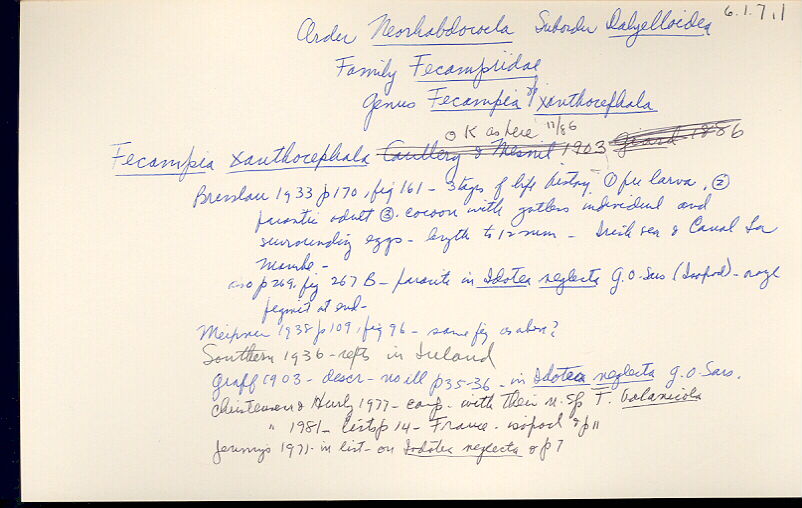 Order Neorhabdocoela Suborder Dalyelloidea 6.1.7.1
Family Fecampiidae
Genus Fecampia of xanthocephala
OK as here 11/86
Fecampia xanthocephala Caullery & Mesnil 1903 Giard 1886
Bresslau 1933 p170, fig 161 - stages of life history ① free larva, ②
parasitic adult ③ cocoon with gutless individual and
surrounding eggs - length to 12 mm - Irish sea & Canal La
Manche -
also p 269, fig 267 B - parasite in Idotea neglecta G.O. Sars (Isopod) - orange
pigment at end -
Meixner 1938 p109, fig 96 - same fig as above?
Southern 1936 - repts in Ireland
Graff 1903 - descr - no ill p35-36 - in Idotea neglecta G.O. Sars.
Christensen & Hurly 1977 - comp. with their n. sp T. balanicola
" 1981 - lists p 14 - France - isopod & p 11
Jennings 1971 - in list - on Iodotea neglecta & p 7